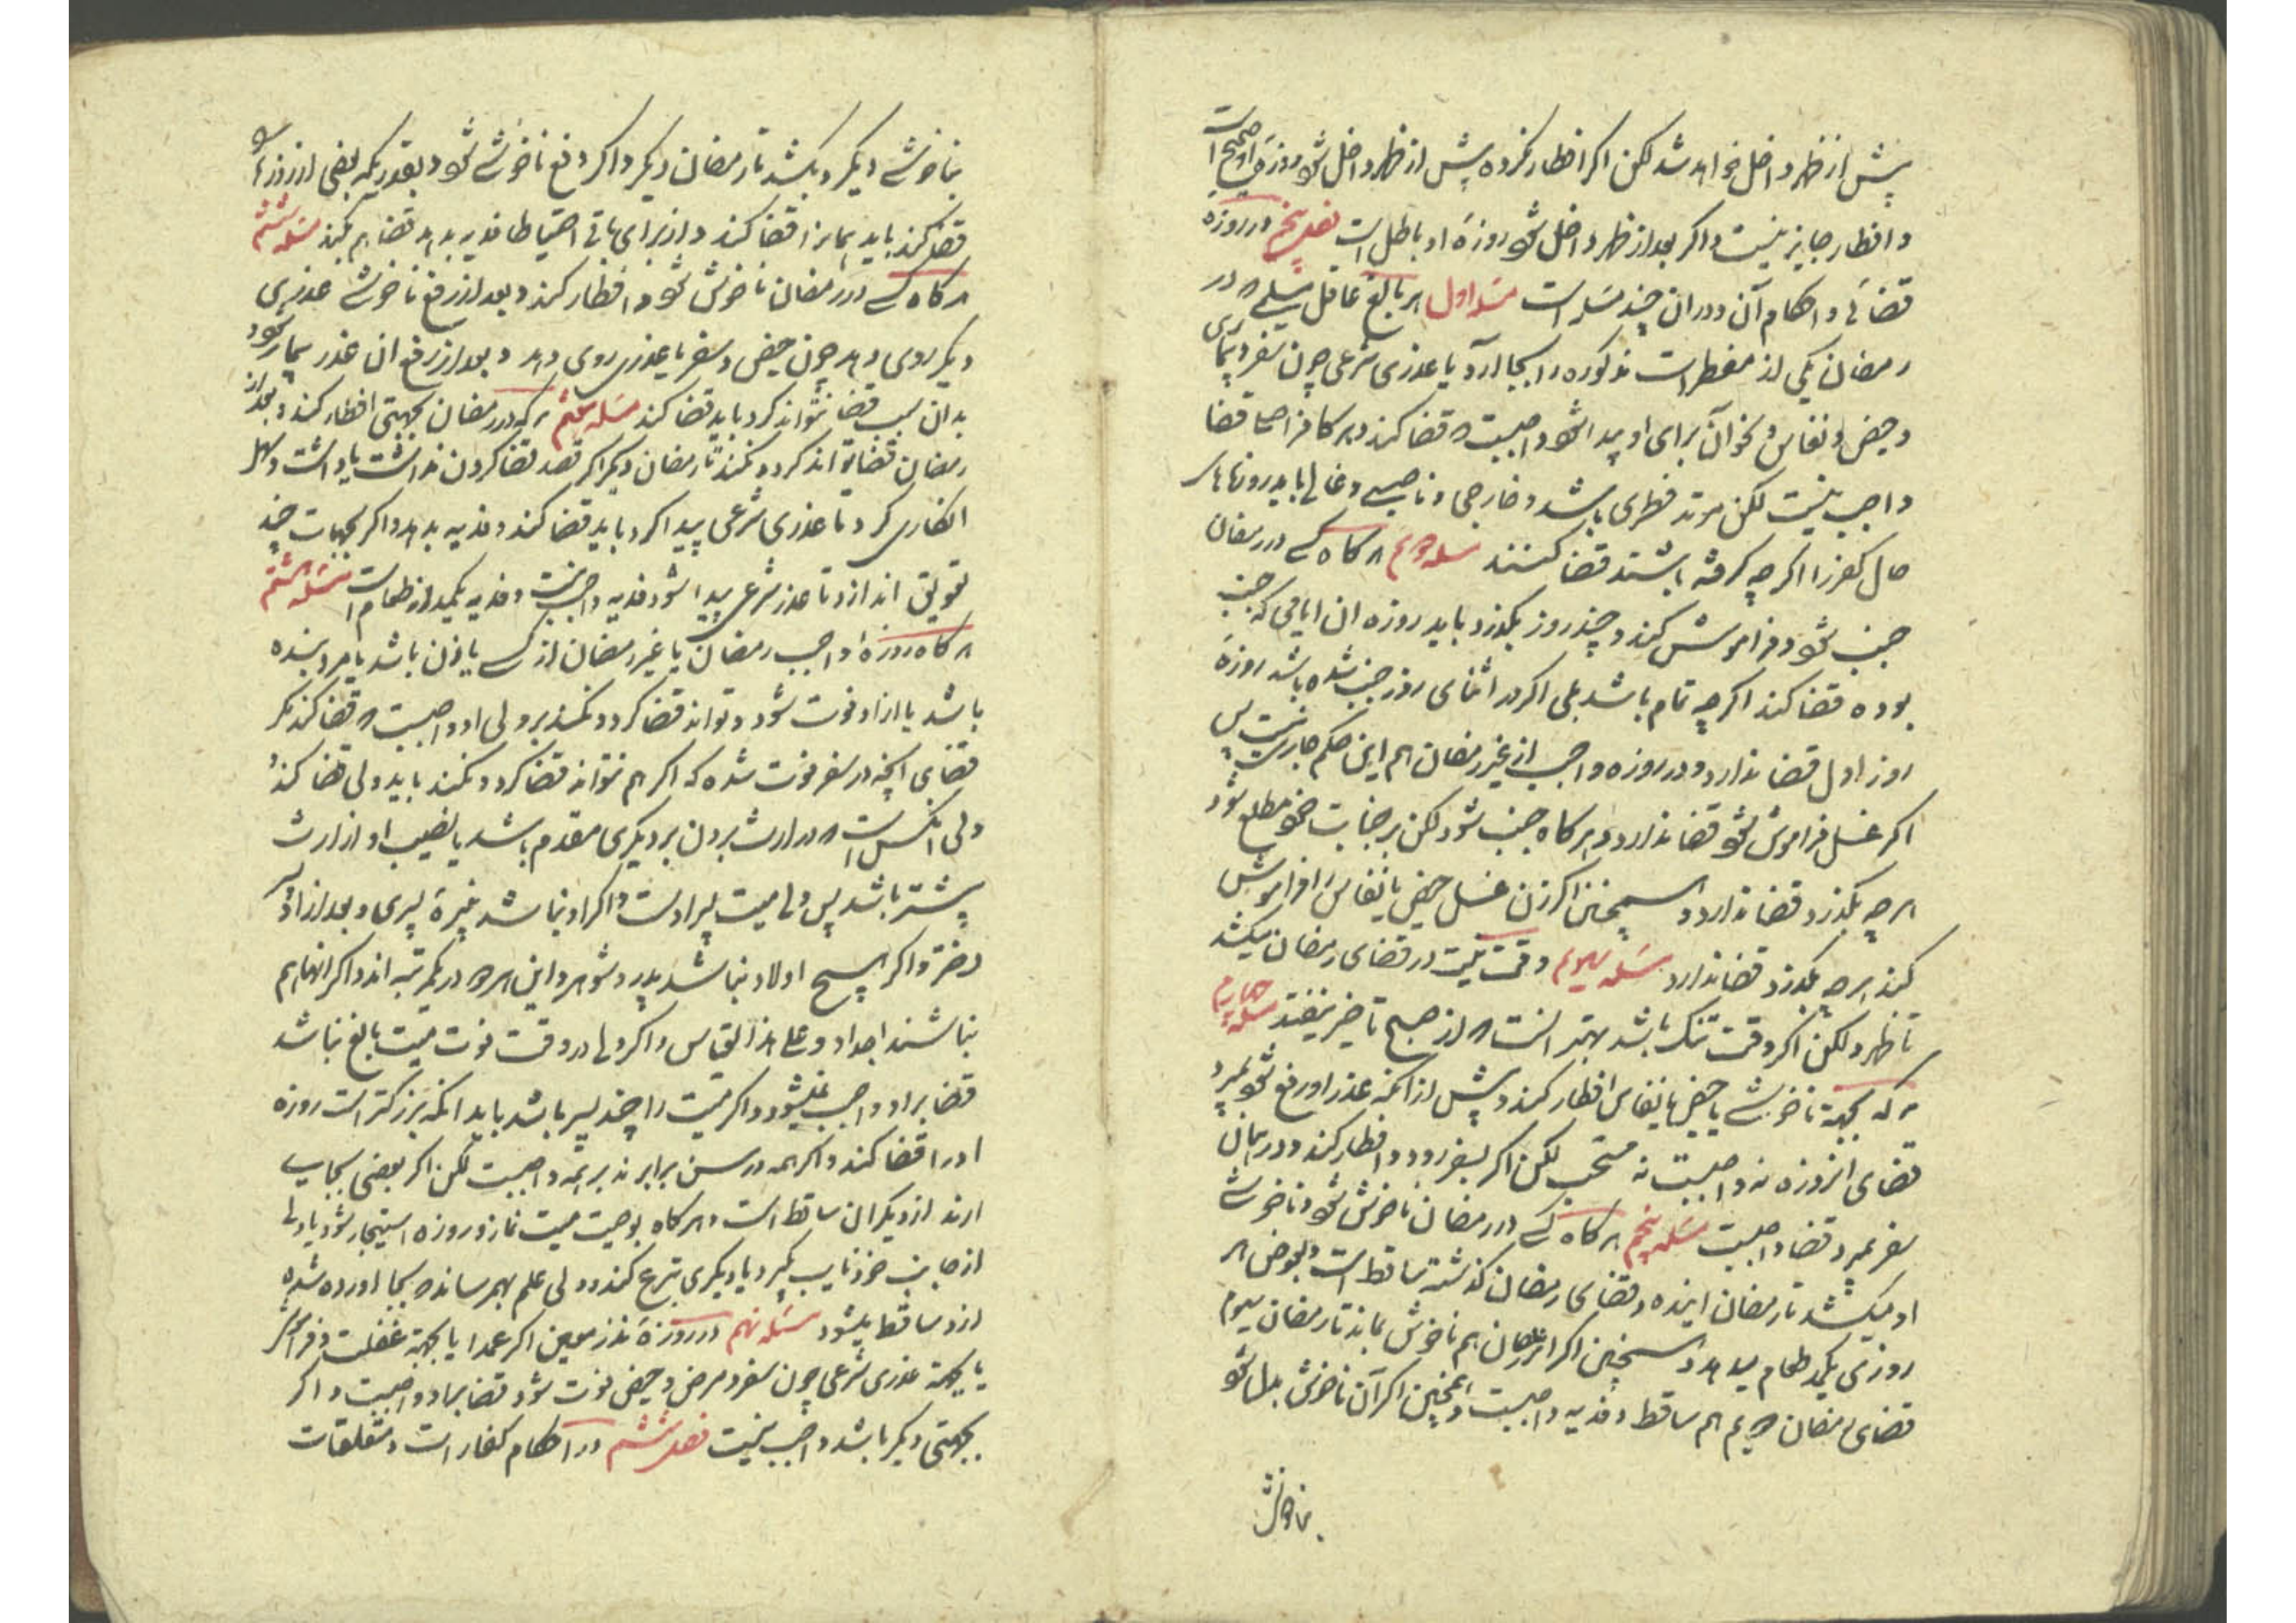 پیش از ظهر داخل خواهد شد لکن اکر افطار نکرده پیش از ظهر داخل شود روزهٔ او صحیح است
و افطار جایز نیست و اکر بعد از ظهر داخل شود روزهٔ او باطل است فصل پنجم در روزه
قضائی و احکام آن و در ان چند مسئله است مسئله اول هر بالغ عاقل مسلمی که در
رمضان یکی از مفطرات مذکوره را بجا آرد یا عذری شرعی چون سفر و بیماری
و حیض و نفاس و نحو آن برای او پیدا شود واجبست که قضا کند و بر کافر اصلی قضا
واجب نیست لکن مرتد فطری باشد و خارجی و ناصبی و غالی باید روزهای
حال کفر را اکرچه کرفته باشند قضا کنند مسئله دویم هرکاه کسی در رمضان
جنب شود و فراموش کند و چند روز بکذرد باید روزه ان ایامی که جنب
بوده قضا کند اکرچه تمام باشد بلی اکر در اثنای روز جنب شده باشد روزهٔ
روز اول قضا ندارد و در روزه واجب از غیر رمضان هم این حکم جاریست پس
اکر غسل فراموش شود قضا ندارد و هرکاه جنب شود لکن بر جنابت خود مطلع نشود
هرچه بکذرد قضا ندارد و همچنین اکر زن غسل حیض یا نفاس را فراموش
کند هرچه بکذرد قضا ندارد مسئله سیوم وقت نیت در قضای رمضان میکشد
تا ظهر ولکن اکر وقت تنک باشد بهتر انست که از صبح تاخیر نیفتد مسئله چهارم
هرکه بجهة ناخوشی یا حیض یا نفاس افطار کند و پیش از انکه عذر او رفع شود بمیرد
قضای انروزه نه واجبست نه مستحب لکن اکر بسفر رود و افطار کند و در همان
سفر بمیرد قضا واجبست مسئله پنجم هرکاه کسی در رمضان ناخوش شود و ناخوشی
او میکشد تا رمضان اینده قضای رمضان کذشته ساقط است و بعوض هر
روزی یکمد طعام میدهد و همچنین اکر رمضان هم ناخوش بماند تا رمضان سیوم
قضای رمضان دویم هم ساقط و فدیه واجبست و همچنین اکر آن ناخوشی بدل شود
بناخوشی
بناخوشی دیکر و بکشد تا رمضان دیکر و اکر دفع ناخوشی شود و بقدریکه بعضی از روزها را
قضا کند باید همانرا قضا کند و از برای باقی احتیاطا فدیه بدهد قضا هم بکند مسئله ششم
هرکاه کسی در رمضان ناخوش شود و افطار کند و بعد از رفع ناخوشی عذری
دیکر روی دهد چون حیض و سفر یا عذری روی دهد و بعد از رفع ان عذر بیمار شود
بدان سبب قضا نتواند کرد باید قضا کند مسئله هفتم هرکه در رمضان بجهتی افطار کند و بعد از
رمضان قضا تواند کرد و نکند تا رمضان دیکر اکر قصد قضا کردن نداشت یا داشت و سهل
انکاری کرد تا عذری شرعی پیدا کرد باید قضا کند و فدیه بدهد و اکر بجهات چند
تعویق اندازد تا عذر شرعی پیدا شود فدیه واجب نیست و فدیه یکمد از طعام است مسئله هشتم
هرکاه روزهٔ واجب رمضان یا غیر رمضان از کسی یا زن باشد یا مرد بنده
باشد یا ازاد فوت شود و تواند قضا کرد و نکند بر ولی او واجبست که قضا کند مکر
قضای انچه در سفر فوت شده که اکر هم نتواند قضا کرد و نکند باید ولی قضا کند و
ولی انکس است که در ارث بردن بر دیکری مقدم باشد یا نصیب او از ارث
بیشتر باشد پس ولی میت پسر اوست و اکر او نباشد نبیرهٔ پسری و بعد از او
دختر و اکر هیچ اولاد نباشد پدر و شوهر و این هر دو در یکمرتبه اند و اکر انها هم
نباشند اجداد و علی هذا القیاس و اکر ولی در وقت فوت میت بالغ نباشد
قضا بر او واجب نمیشود و اکر میت را چند پسر باشد باید انکه بزرکتر است روزه
او را قضا کند و اکر همه در سن برابرند بر همه واجبست لکن اکر بعضی بجای
ارند از دیکران ساقط است و هرکاه بوصیت میت نماز و روزه استیجار شود یا ولی
از جانب خود نایب بکیرد یا دیکری تبرع کند و ولی علم بهم رساند که بجا اورده شده
از او ساقط میشود مسئله نهم در روزهٔ نذر معین اکر عمدا یا بجهة غفلت و فراموشی
یا بجهة عذری شرعی چون سفر و مرض و حیض فوت شود قضا بر او واجبست و اکر
بجهتی دیکر باشد واجب نیست فصل ششم در احکام کفارات و متعلقات